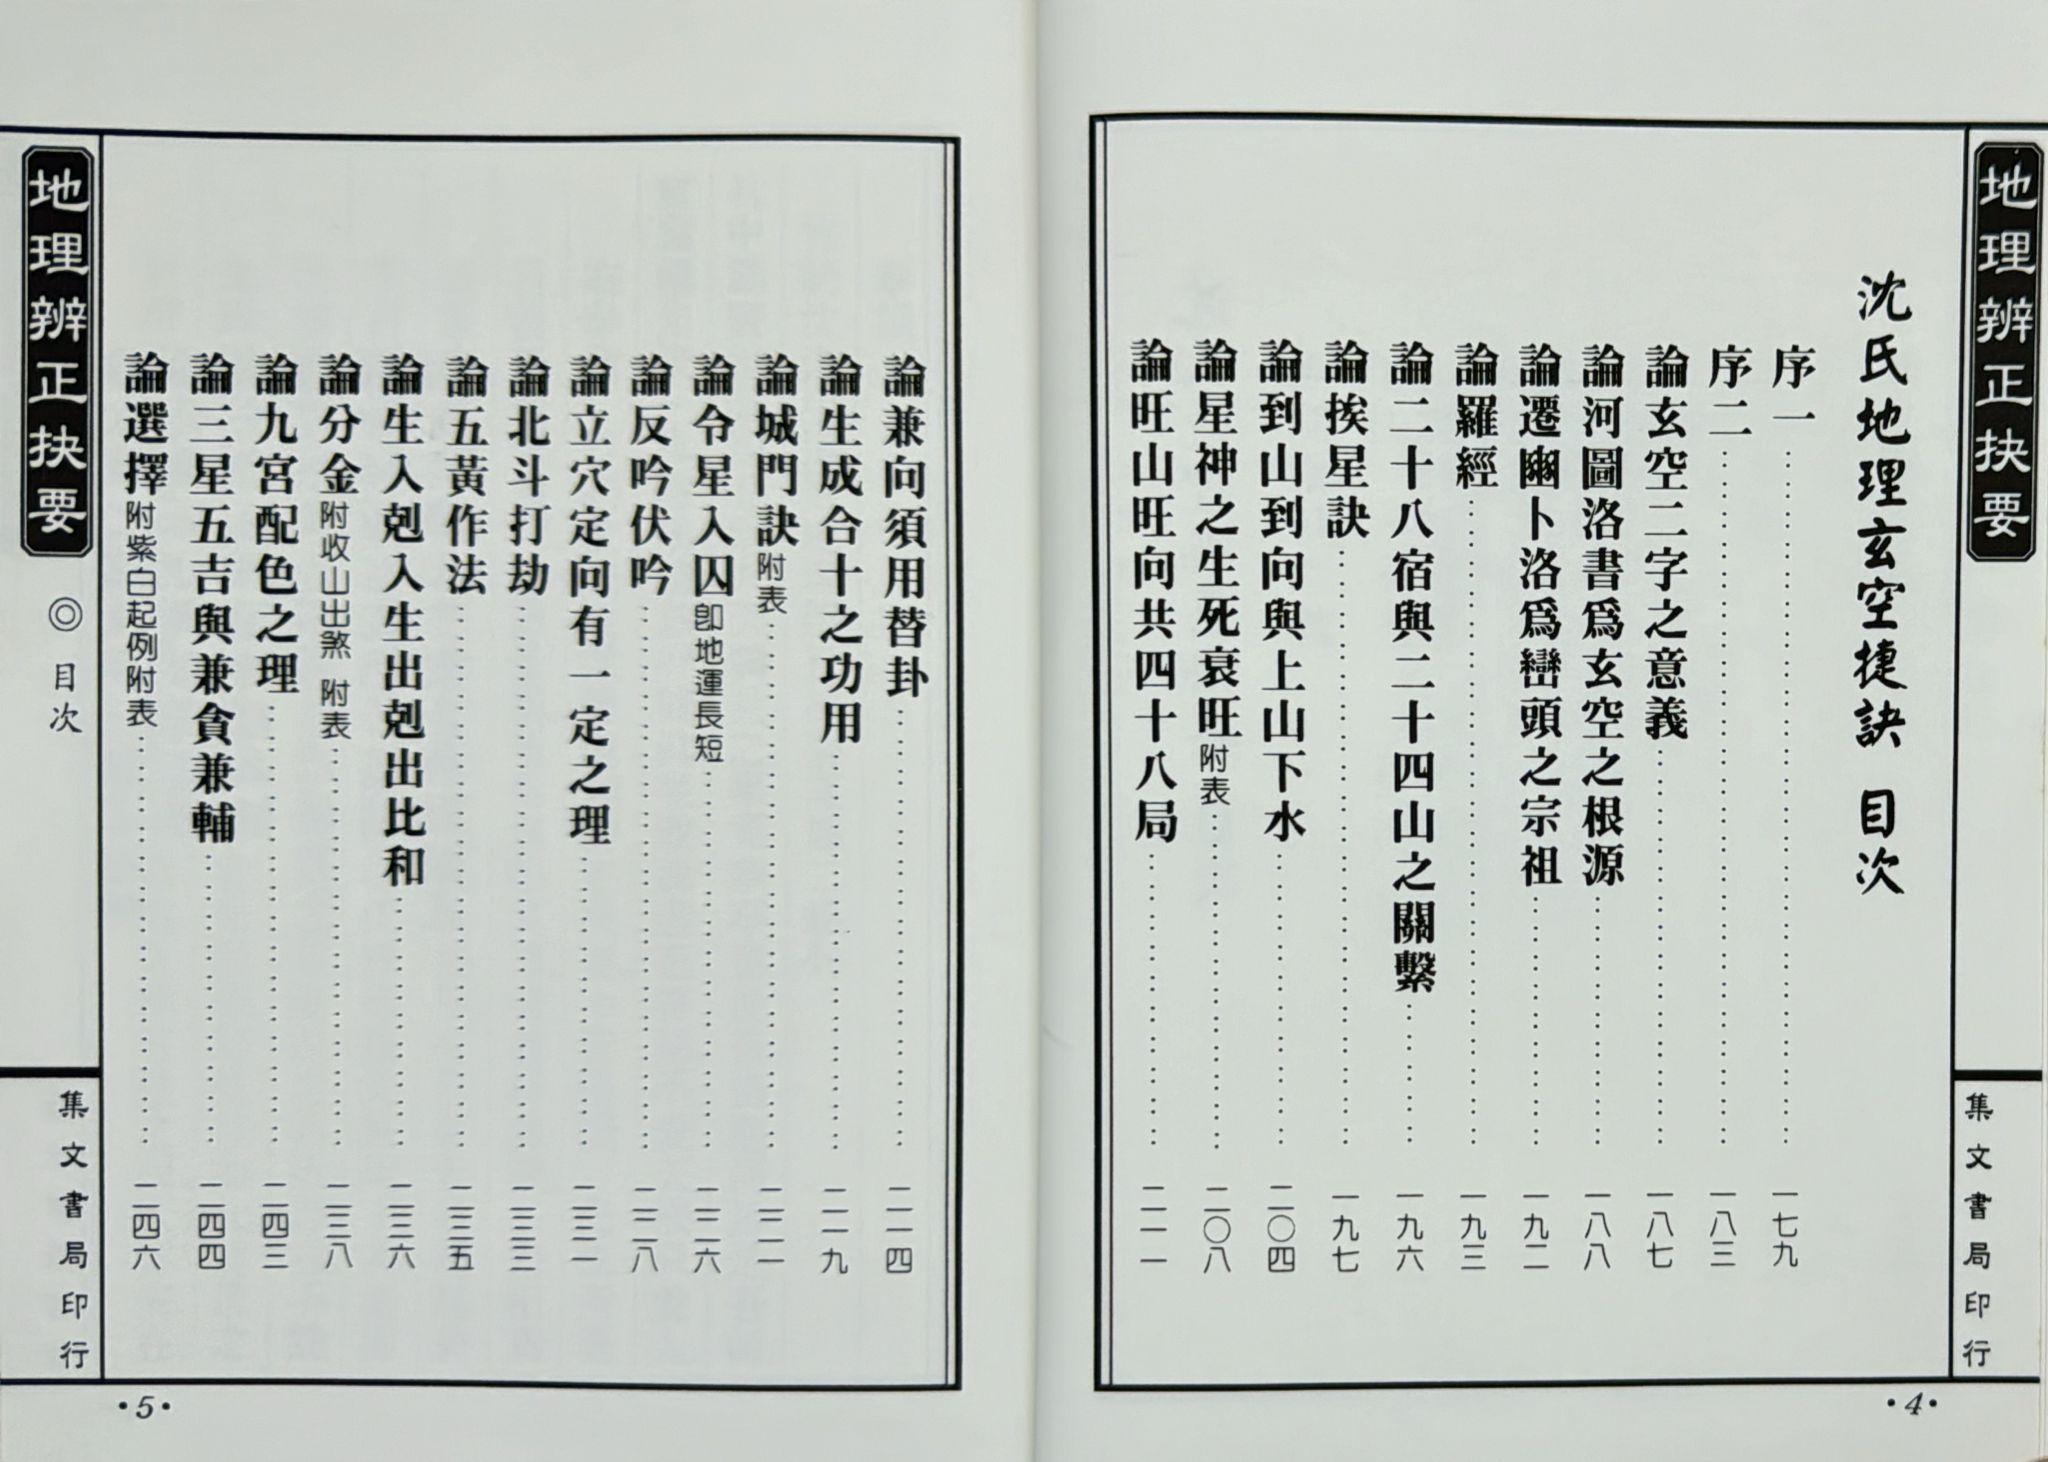 地理辨正抉要
集文書局印行
•4•
沈氏地理玄空捷訣 目次
序一……一七九
序二……一八三
論玄空二字之意義……一八七
論河圖洛書為玄空之根源……一八八
論遷豳卜洛為巒頭之宗祖……一九二
論羅經……一九三
論二十八宿與二十四山之關繫……一九六
論挨星訣……一九七
論到山到向與上山下水……二〇四
論星神之生死衰旺附表……二〇八
論旺山旺向共四十八局……二一一
論兼向須用替卦……二一四
論生成合十之功用……二一九
論城門訣附表……二二一
論令星入囚即地運長短……二二六
論反吟伏吟……二二八
論立穴定向有一定之理……二三一
論北斗打劫……二三三
論五黃作法……二三五
論生入剋入生出剋出比和……二三六
論分金附收山出煞 附表……二三八
論九宮配色之理……二四三
論三星五吉與兼貪兼輔……二四四
論選擇附紫白起例附表……二四六
地理辨正抉要
◎目次
集文書局印行
•5•